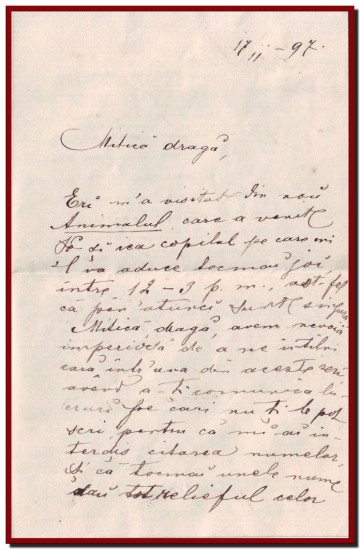 17/II - 97.
Mitică dragă,
Erĭ m'a visitat din noŭ
Animalul, care a venit
să-și ia copilul pe care mi
'l va aduce tocmaĭ joĭ
între 12-3 p. m., ast-fel
că pân'atuncĭ sunt singură
Mitică dragă, avem nevoiă
imperiósă de a ne întîlni
într'una din aceste serĭ
avênd a-ți comunica lu-
crurĭ pe carĭ nu ți le pot
scri, pentru că mĭ-aĭ in-
terdis citarea numelor,
și că tocmaĭ unele nume
daŭ tot relieful celor